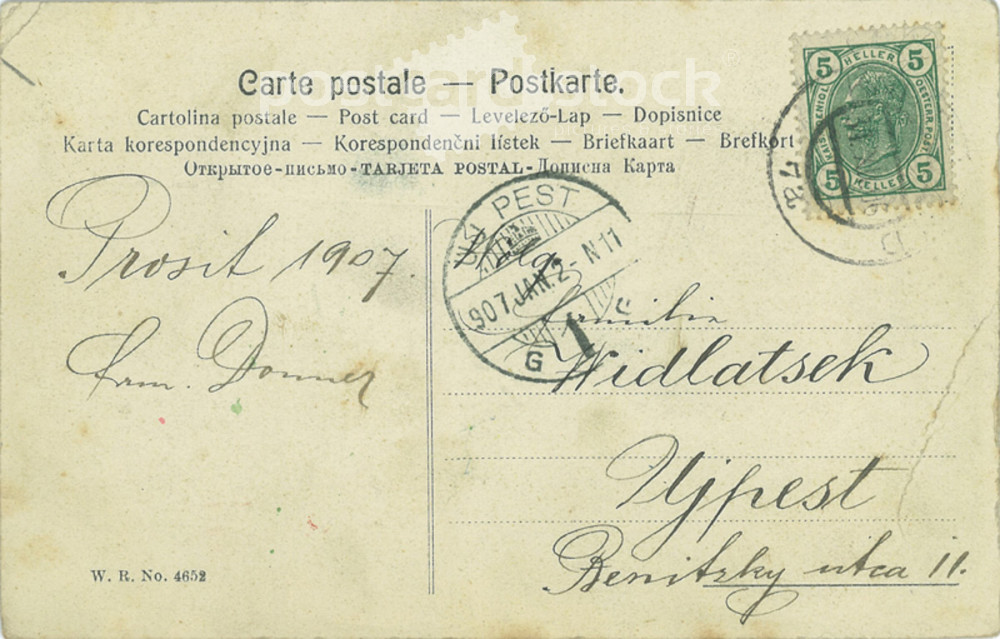 Carte postale — Postkarte.
Cartolina postale — Post card — Levelező-Lap — Dopisnice
Karta korespondencyjna — Korespondenční lístek — Briefkaart — Brefkort
Открытое-письмо-TARJETA POSTAL-Дописна Карта
5 HELLER 5
OESTERR. POST
5 HELLER 5
ÚJ PEST
907 JAN. 2 - N 11
G 1
Prosit 1907.
Fam. Donner
Familie
Widlatsek
Ujpest
Benitzky utca 11.
W. R. No. 4652
postcardstock